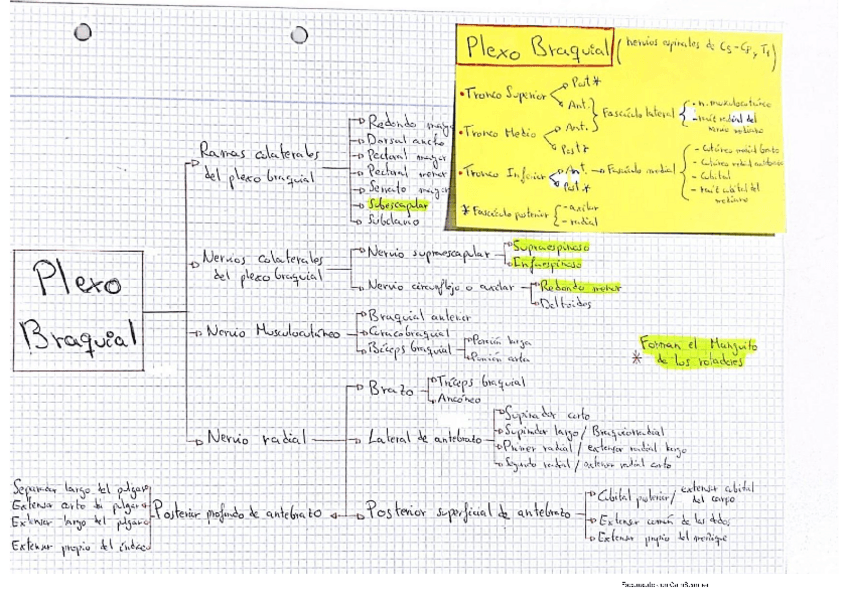 Plexo Braquial (nervios espinales de C5-C8 y T1)
• Tronco Superior Post *
Ant.
Fascículo lateral - n. musculocutáneo
- raíz radial del nervio mediano
• Tronco Medio Ant.
Post *
• Tronco Inferior Ant. Fascículo medial
Post *
- Cutáneo medial brazo
- Cutáneo medial antebrazo
- Cubital
- Raíz cubital del mediano
* Fascículo posterior - axilar
- radial
Plexo
Braquial
Ramas colaterales
del plexo braquial
Redondo mayor
Dorsal ancho
Pectoral mayor
Pectoral menor
Serrato mayor
Subescapular
Subclavio
Nervios colaterales
del plexo braquial
Nervio supraescapular
Supraespinoso
Infraespinoso
Nervio circunflejo o axilar
Redondo menor
Deltoides
Nervio Musculocutáneo
Braquial anterior
Coracobraquial
Bíceps braquial
Porción larga
Porción corta
Forman el Manguito
* de los rotadores
Nervio radial
Brazo
Tríceps braquial
Ancóneo
Lateral de antebrazo
Supinador corto
Supinador largo / Braquiorradial
Primer radial / extensor radial largo
Segundo radial / extensor radial corto
Posterior superficial de antebrazo
Cubital posterior / extensor cubital del carpo
Extensor común de los dedos
Extensor propio del meñique
Posterior profundo de antebrazo
Separador largo del pulgar
Extensor corto del pulgar
Extensor largo del pulgar
Extensor propio del índice